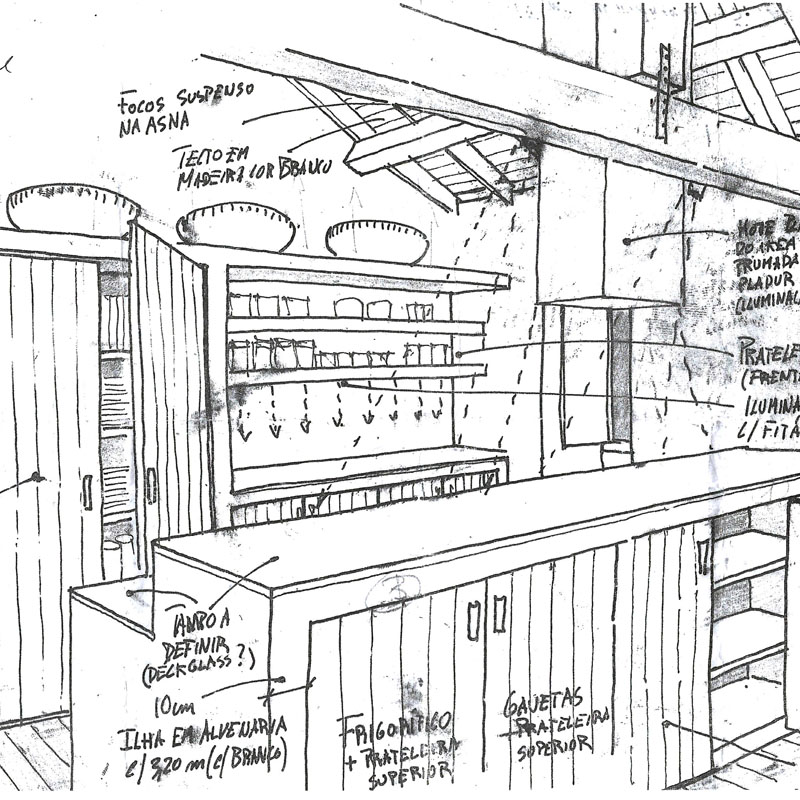 FOCOS SUSPENSO
NA ASNA
TECTO EM
MADEIRA COR BRANCO
HOTE
DO AREA
PRUMADA
PLADUR
(ILUMINA
PRATELE
(FRENT
ILUMINA
C/ FITA
TAMPO A
DEFINIR
(DECKGLASS?)
10cm
ILHA EM ALVENARIA
c/ 3,20 m (C/ BRANCO)
3
FRIGORIFICO
+ PRATELEIRA
SUPERIOR
GAVETAS
+ PRATELEIRA
SUPERIOR